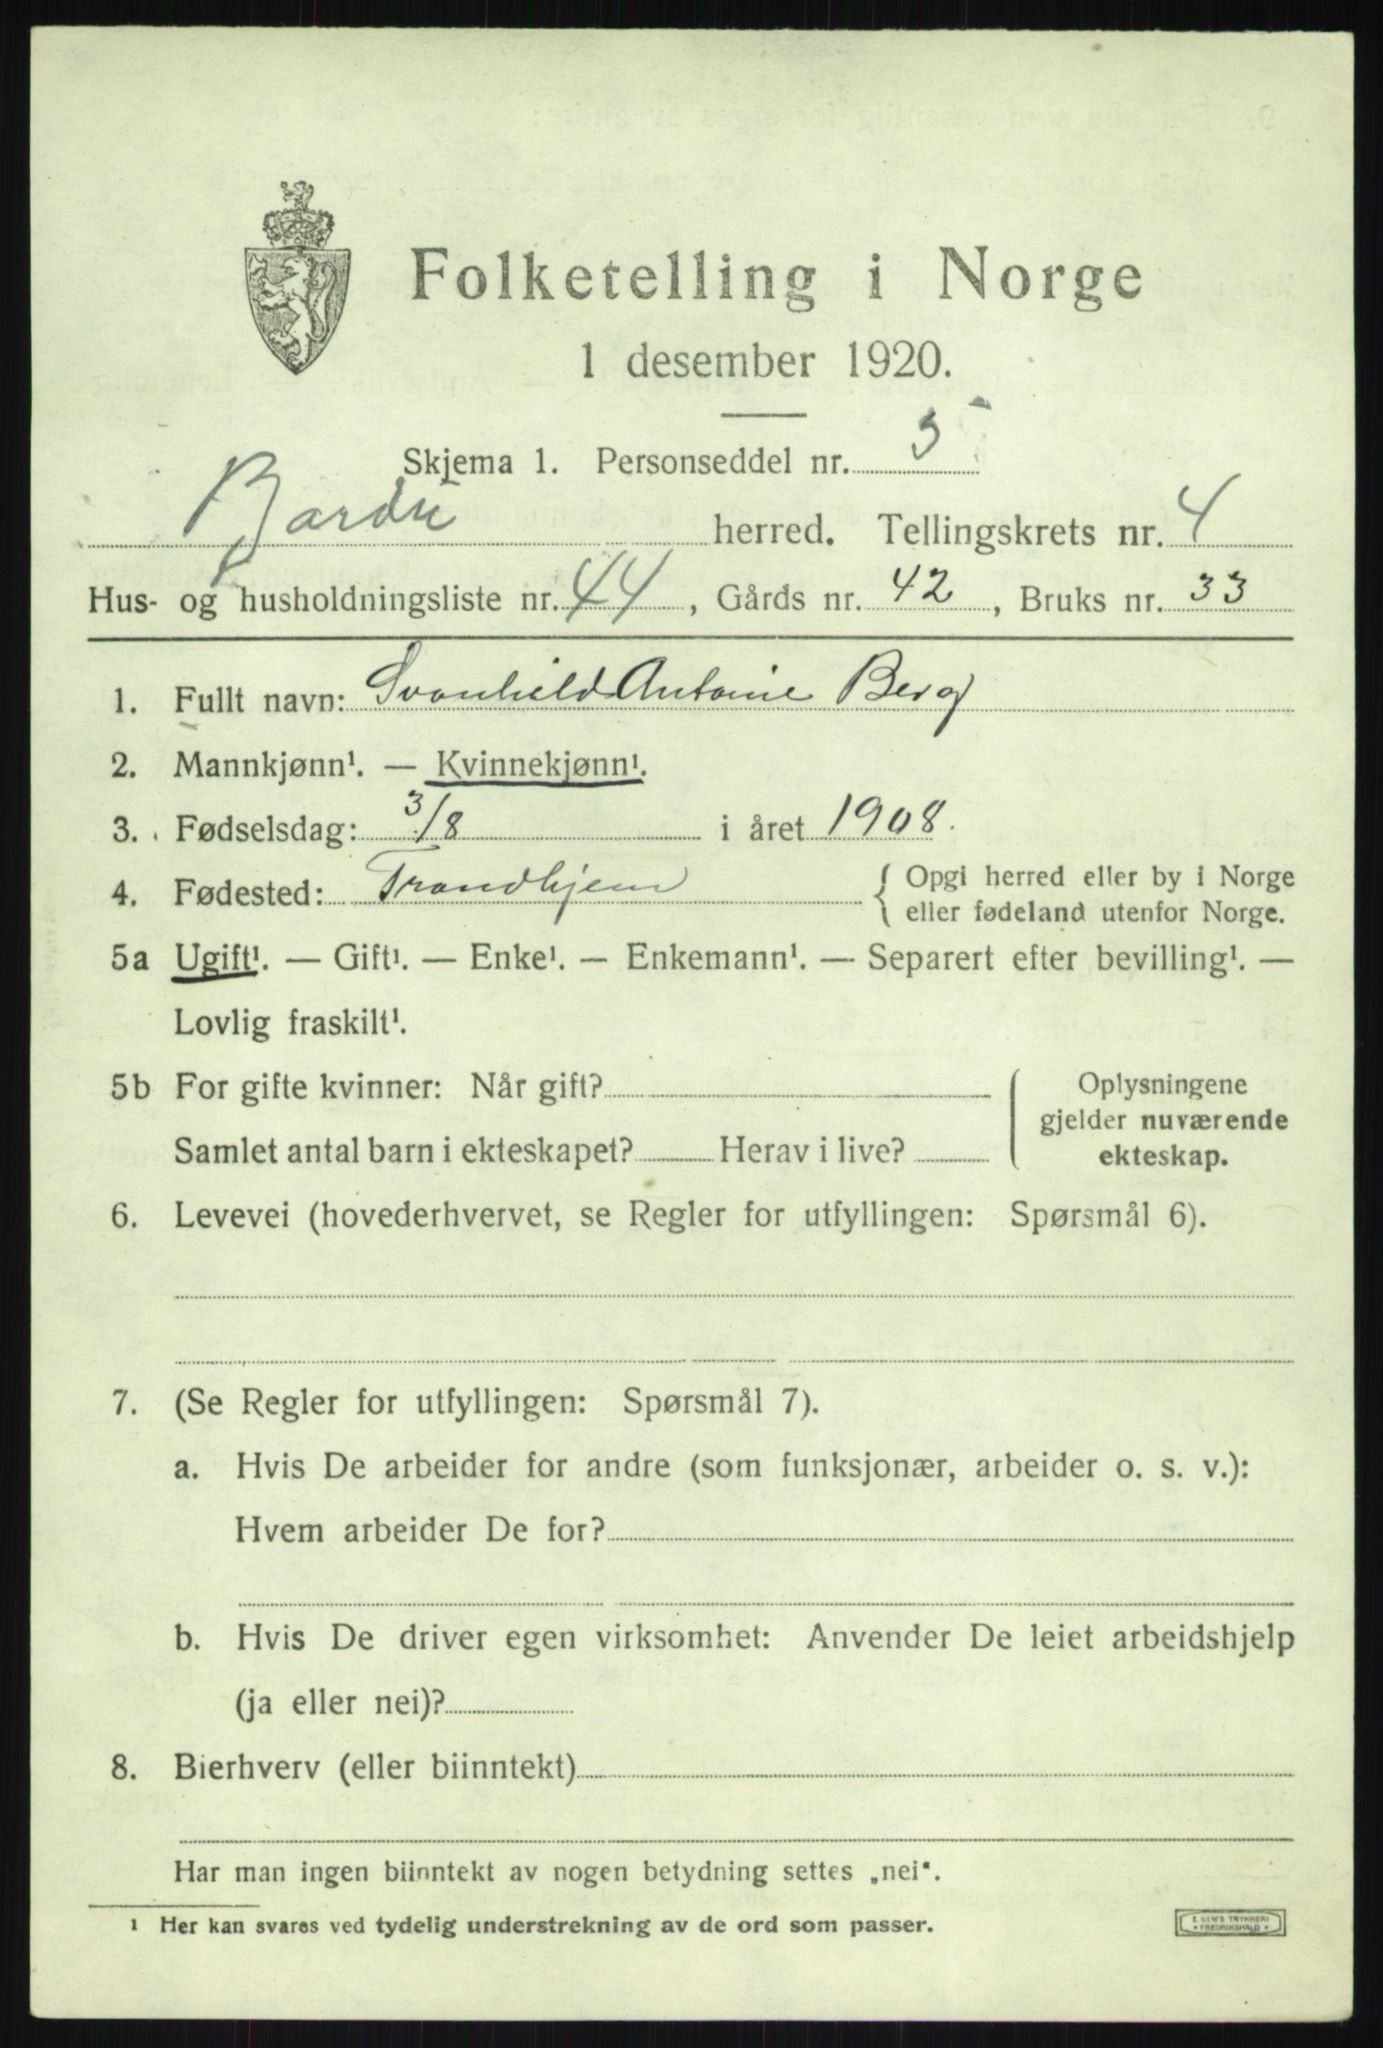 Folketelling i Norge
1 desember 1920.
Skjema 1. Personseddel nr. 5
Bardu herred. Tellingskrets nr. 4
Hus- og husholdningsliste nr. 44, Gårds nr. 42, Bruks nr. 33
1. Fullt navn: Svanhild Antonie Berg
2. Mannkjønn¹. — Kvinnekjønn¹.
3. Fødselsdag: 3/8 i året 1908.
4. Fødested: Trondhjem { Opgi herred eller by i Norge
eller fødeland utenfor Norge.
5a Ugift¹. — Gift¹. — Enke¹. — Enkemann¹. — Separert efter bevilling¹. —
Lovlig fraskilt¹.
5b For gifte kvinner: Når gift?
Samlet antal barn i ekteskapet? Herav i live?
Oplysningene
gjelder nuværende
ekteskap.
6. Levevei (hovederhvervet, se Regler for utfyllingen: Spørsmål 6).
7. (Se Regler for utfyllingen: Spørsmål 7).
a. Hvis De arbeider for andre (som funksjonær, arbeider o. s. v.):
Hvem arbeider De for?
b. Hvis De driver egen virksomhet: Anvender De leiet arbeidshjelp
(ja eller nei)?
8. Bierhverv (eller biinntekt)
Har man ingen biinntekt av nogen betydning settes „nei“.
¹ Her kan svares ved tydelig understrekning av de ord som passer.
E. SEM'S TRYKKERI
* FREDRIKSHALD *